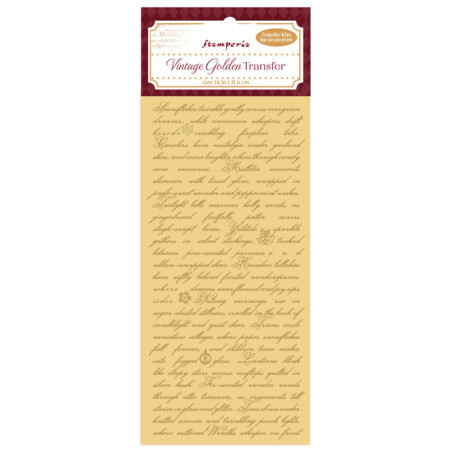 Transfer film
for decoration
Stamperia
Vintage Golden Transfer
size 10.16 x 21.6 cm
Snowflakes twinkle gently across evergreen
dreams, while cinnamon whispers drift
beside crackling fireplace tales.
Carolers hum nostalgia under garland
skies, and cocoa laughter stirs through candy
cane memories. Mistletoe moments
shimmer with tinsel glow, wrapped in
jingle-sweet wonder and peppermint wishes.
Twilight bells murmur holly secrets as
gingerbread footfalls patter across
sleigh-swept lanes. Yuletide sparkle
gathers in velvet stockings, tucked
between pine-scented promises and
ribbon-wrapped cheer. Reindeer lullabies
hum softly behind frosted windowpanes,
where dreams wear flannel and joy sips
cider. Nutmeg mornings rise in
sugar-dusted stillness, cradled in the hush of
candlelight and quiet cheer. Trains circle
miniature villages where paper snowflakes
fall forever, and children trace wishes
into fogged glass. Lanterns blink
like sleepy stars across rooftops quilted in
silver hush. Fir-scented wonder winds
through attic treasures, as ornaments tell
stories in glass and glitter. Time slows under
knitted scarves and twinkling porch lights,
where mittened Wreaths whisper on front